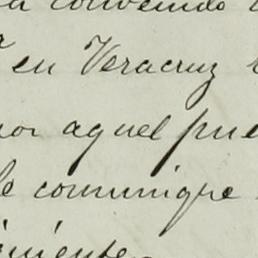 convenido
en Veracruz
por aquel pue
le comunique